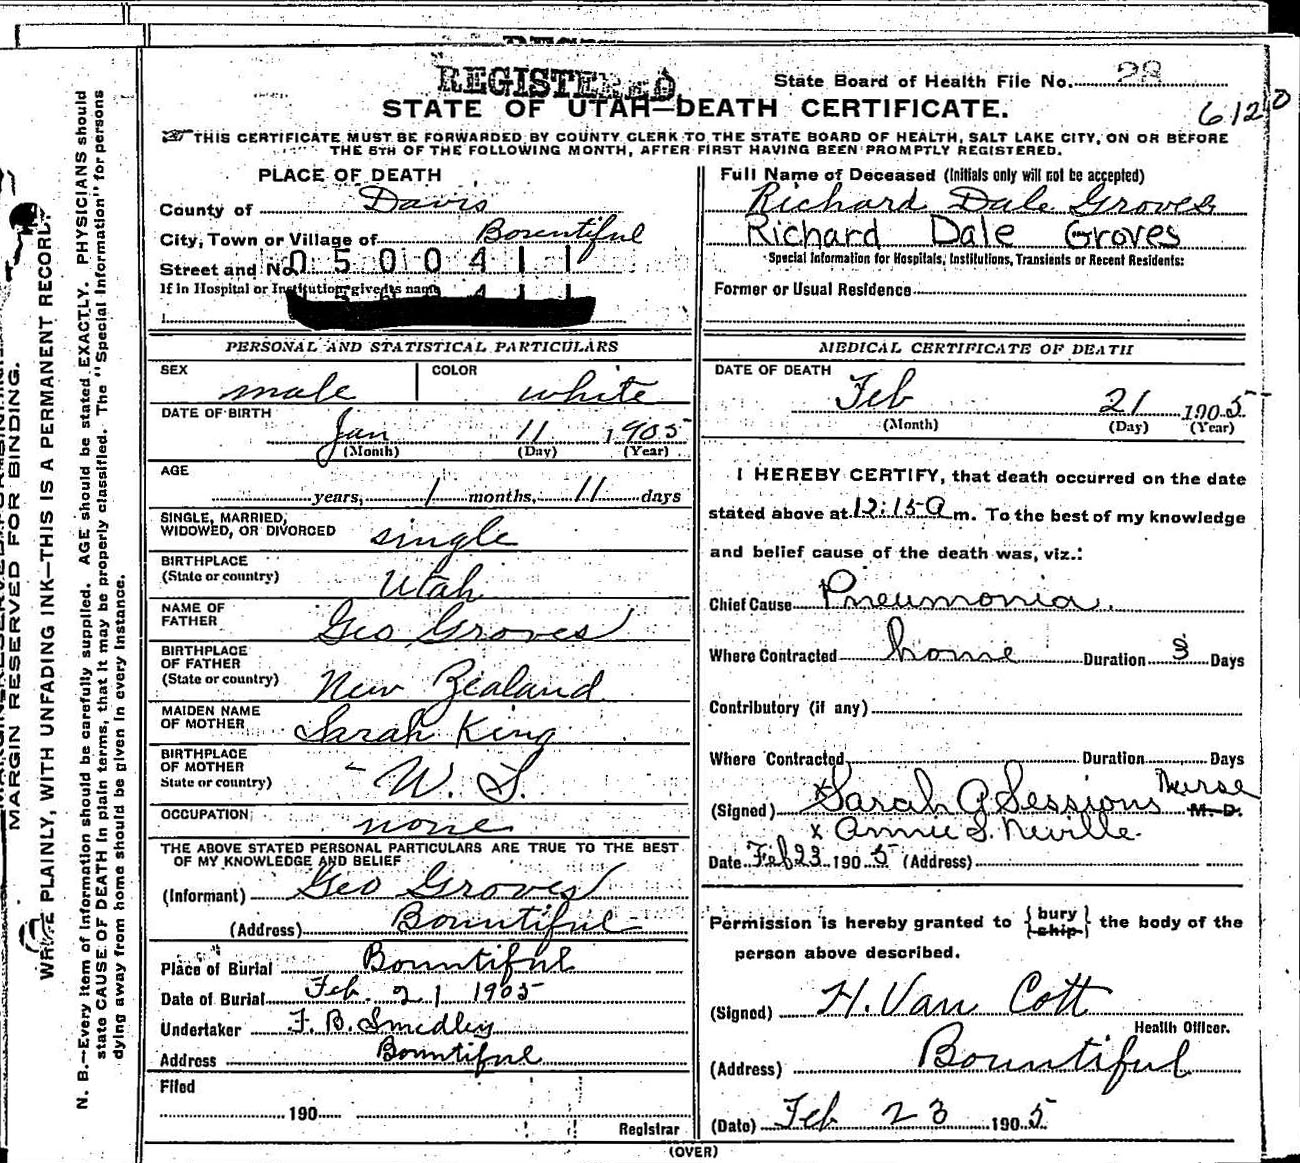 REGISTERED
State Board of Health File No. 28
STATE OF UTAH—DEATH CERTIFICATE.
6120
THIS CERTIFICATE MUST BE FORWARDED BY COUNTY CLERK TO THE STATE BOARD OF HEALTH, SALT LAKE CITY, ON OR BEFORE
THE 5TH OF THE FOLLOWING MONTH, AFTER FIRST HAVING BEEN PROMPTLY REGISTERED.
PLACE OF DEATH
County of Davis
City, Town or Village of Bountiful
Street and No. 0500411
If in Hospital or Institution, give its name
Full Name of Deceased (Initials only will not be accepted)
Richard Dale Groves
Richard Dale Groves
Special Information for Hospitals, Institutions, Transients or Recent Residents:
Former or Usual Residence
PERSONAL AND STATISTICAL PARTICULARS
SEX male COLOR white
DATE OF BIRTH
Jan 11 1905
(Month) (Day) (Year)
AGE
years, 1 months, 11 days
SINGLE, MARRIED,
WIDOWED, OR DIVORCED single
BIRTHPLACE
(State or country) Utah
NAME OF
FATHER Geo Groves
BIRTHPLACE
OF FATHER
(State or country) New Zealand
MAIDEN NAME
OF MOTHER Sarah King
BIRTHPLACE
OF MOTHER
State or country)
OCCUPATION none
THE ABOVE STATED PERSONAL PARTICULARS ARE TRUE TO THE BEST
OF MY KNOWLEDGE AND BELIEF
(Informant) Geo Groves
(Address) Bountiful
Place of Burial Bountiful
Date of Burial Feb. 21 1905
Undertaker F. B. Smedley
Address Bountiful
Filed
190
Registrar
MEDICAL CERTIFICATE OF DEATH
DATE OF DEATH
Feb 21 1905
(Month) (Day) (Year)
I HEREBY CERTIFY, that death occurred on the date
stated above at 12:15 a m. To the best of my knowledge
and belief cause of the death was, viz.:
Chief Cause Pneumonia.
Where Contracted home Duration 3 Days
Contributory (if any)
Where Contracted Duration Days
(Signed) x Sarah A Sessions Nurse M. D.
x Annie S. Neville
Date Feb 23 1905 (Address)
Permission is hereby granted to {bury
ship} the body of the
person above described.
(Signed) H. Van Cott
Health Officer.
(Address) Bountiful
(Date) Feb 23 1905
(OVER)
MARGIN RESERVED FOR BINDING.
WRITE PLAINLY, WITH UNFADING INK—THIS IS A PERMANENT RECORD.
N. B.—Every item of information should be carefully supplied. AGE should be stated EXACTLY. PHYSICIANS should
state CAUSE OF DEATH in plain terms, that it may be properly classified. The "Special Information" for persons
dying away from home should be given in every instance.